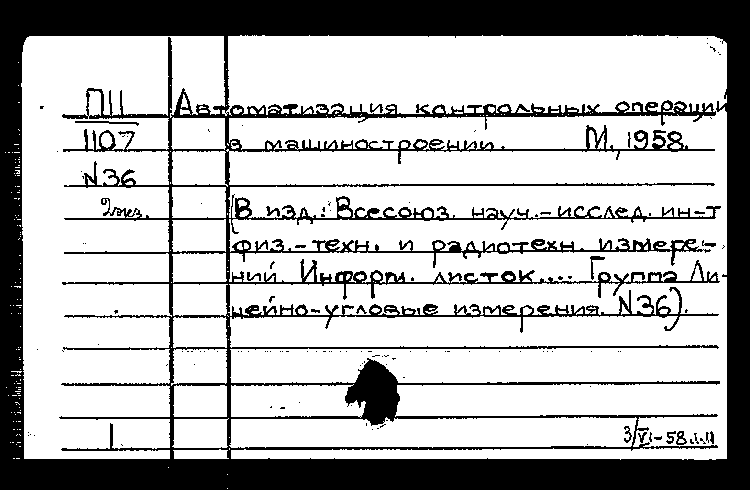 П11 Автоматизация контрольных операций
1107 в машиностроении. М., 1958.
N36
2экз. (В изд.: Всесоюз. науч.-исслед. ин-т
физ.-техн. и радиотехн. измере-
ний. Информ. листок.... Группа Ли-
нейно-угловые измерения. N36).
1 3/VI-58